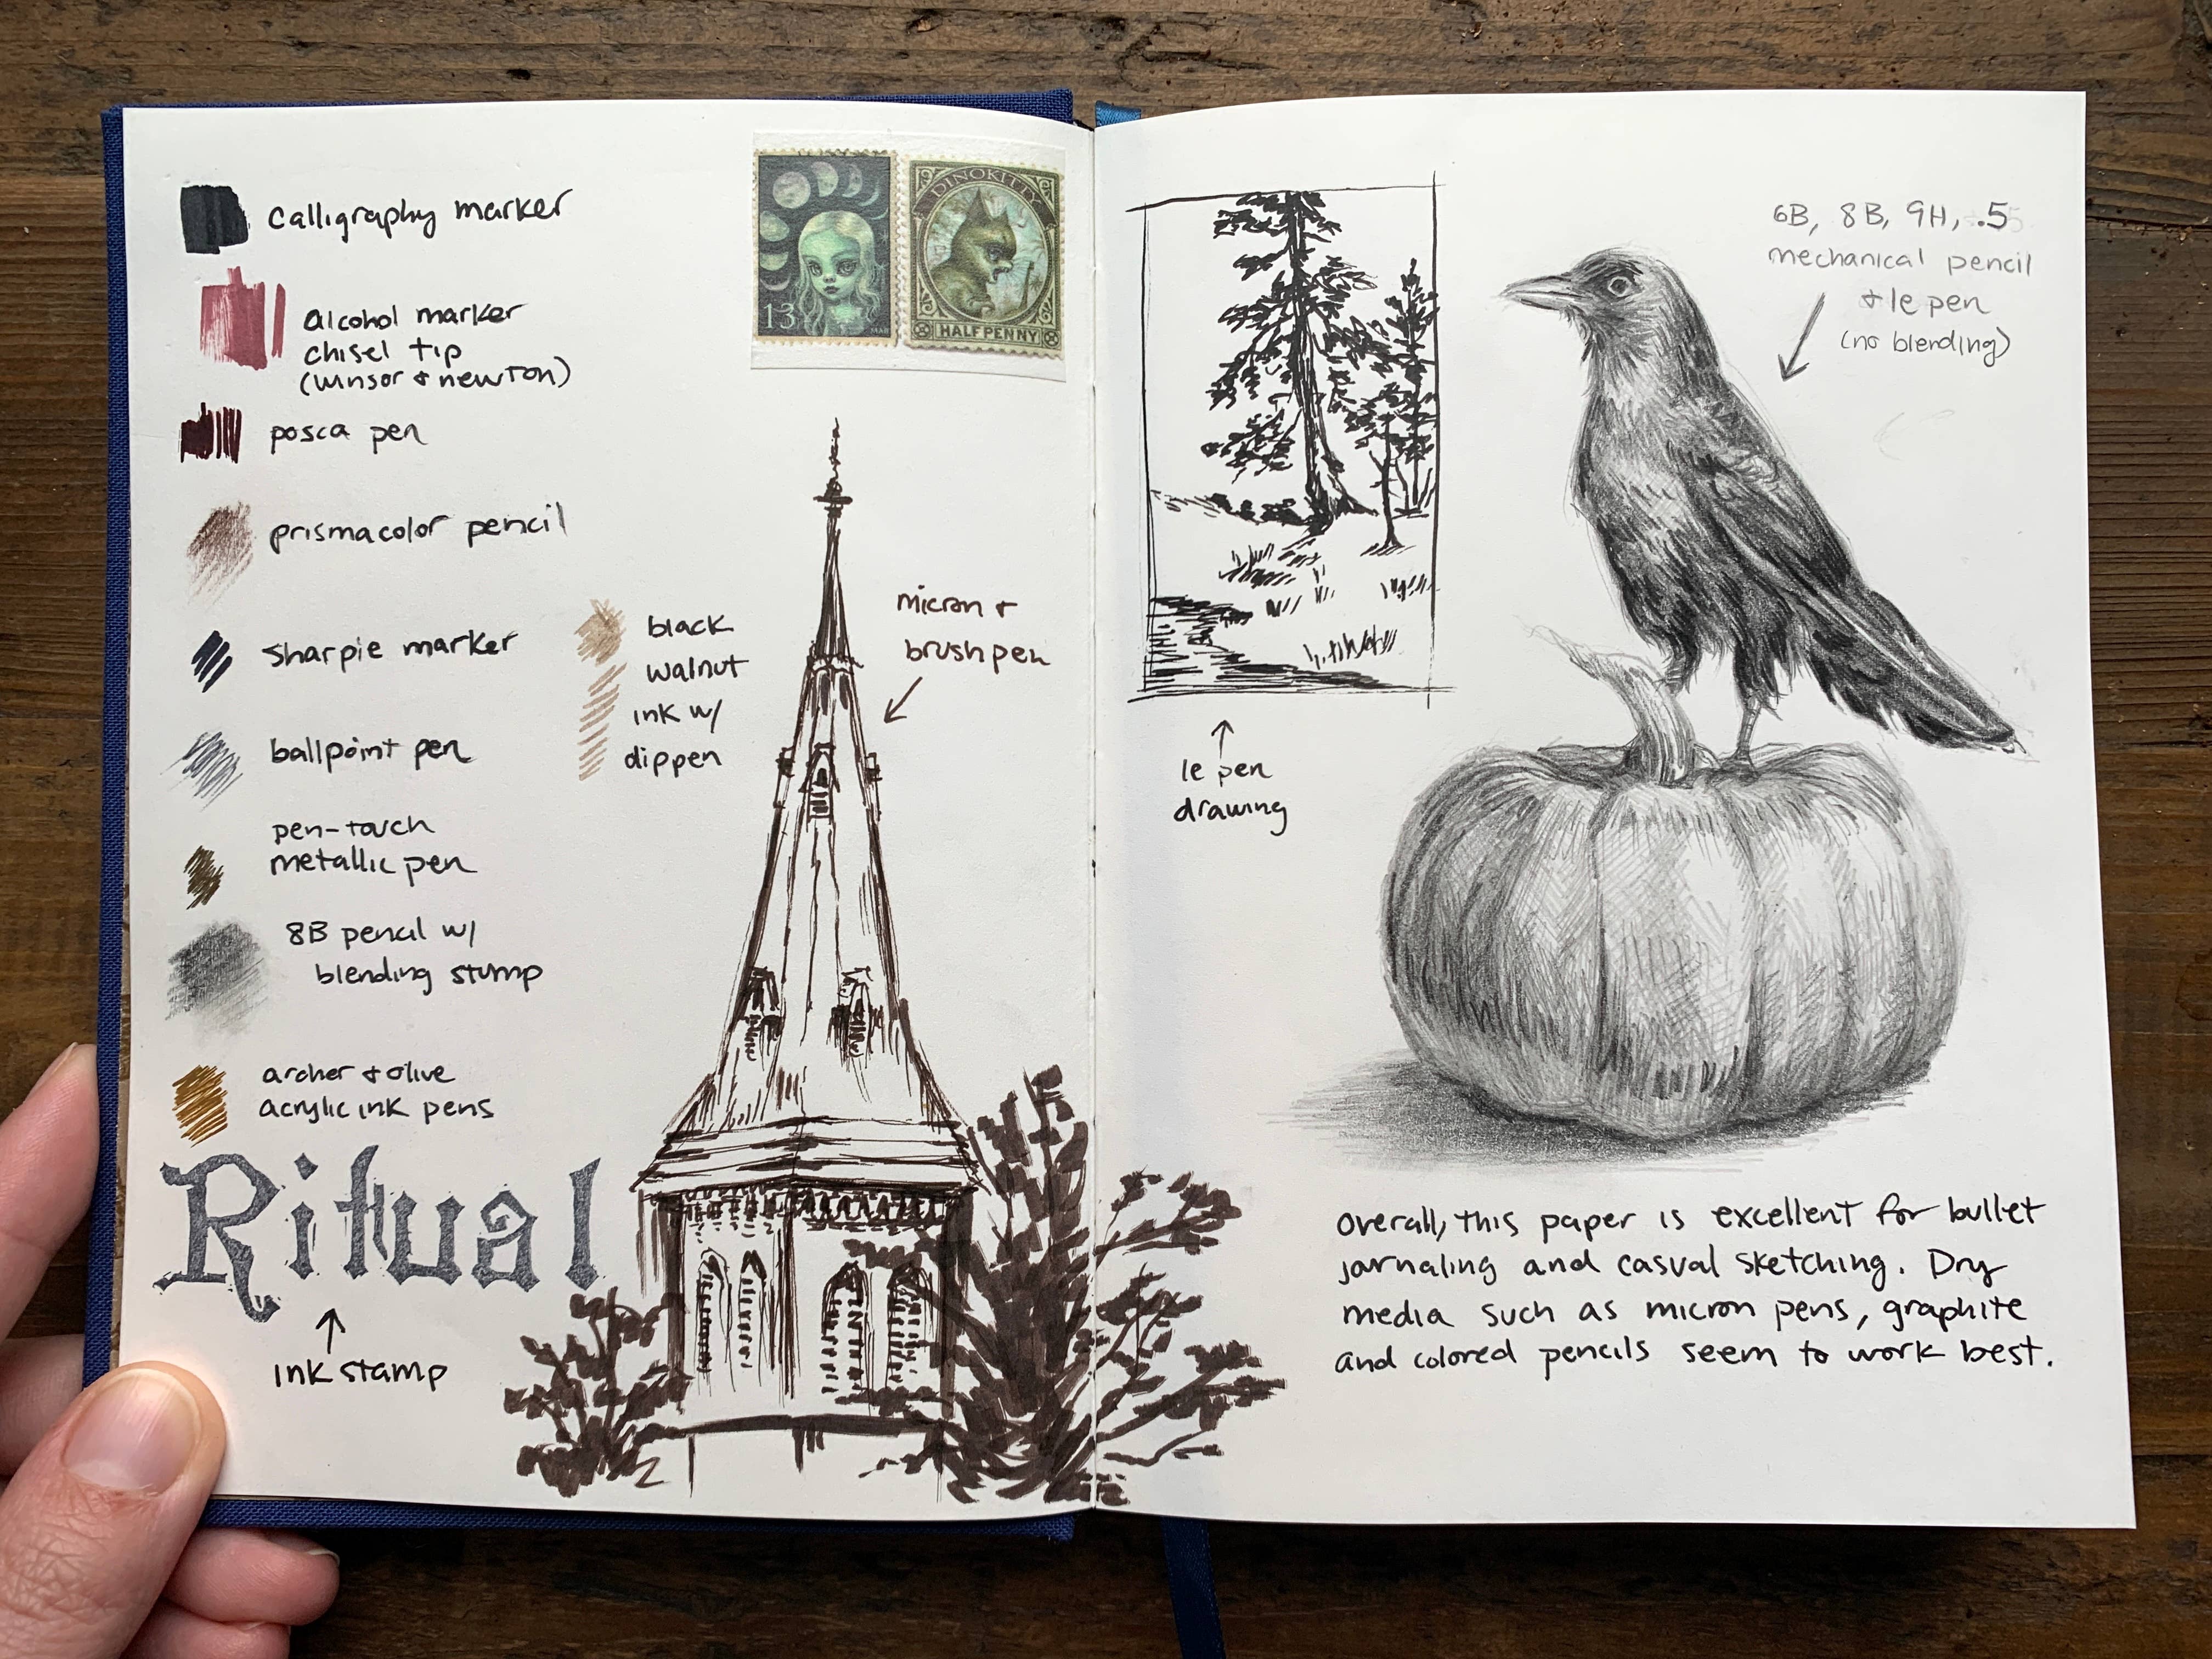 calligraphy marker
alcohol marker
chisel tip
(winsor & newton)
posca pen
prismacolor pencil
sharpie marker
ballpoint pen
pen-touch
metallic pen
8B pencil w/
blending stump
archer & olive
acrylic ink pens
Ritual
ink stamp
black
walnut
ink w/
dip pen
13
MAB
DINOKITTY
HALF PENNY
micron &
brush pen
le pen
drawing
6B, 8B, 9H, .5
mechanical pencil
& le pen
(no blending)
Overall, this paper is excellent for bullet
journaling and casual sketching. Dry
media such as micron pens, graphite
and colored pencils seem to work best.